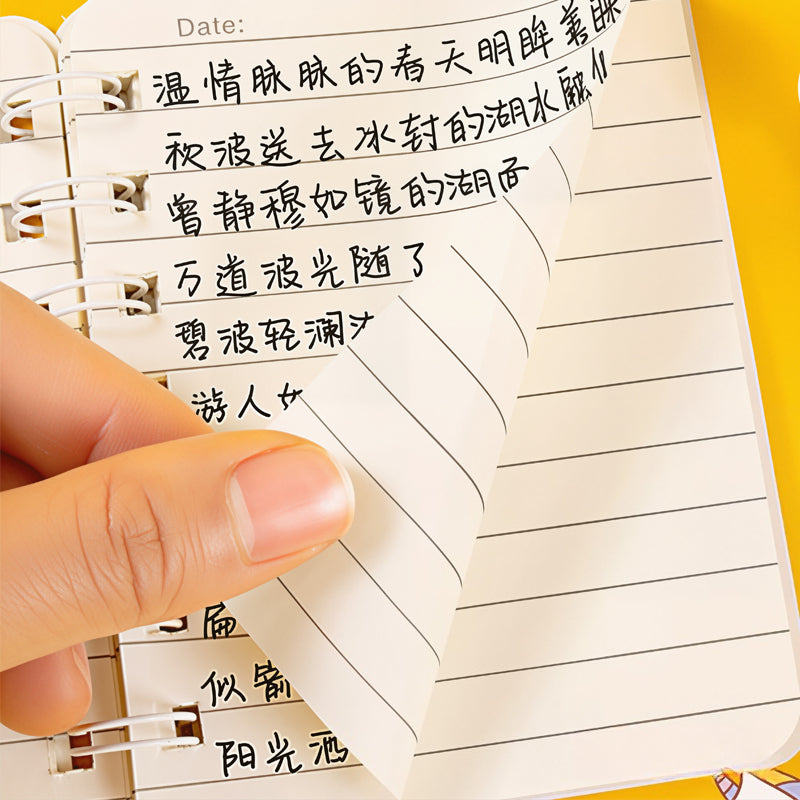 Date:
温情脉脉的春天明眸善睐
秋波送去冰封的湖水融化
曾静穆如镜的湖面
万道波光随了
碧波轻澜
游人如
扁
似箭
阳光洒